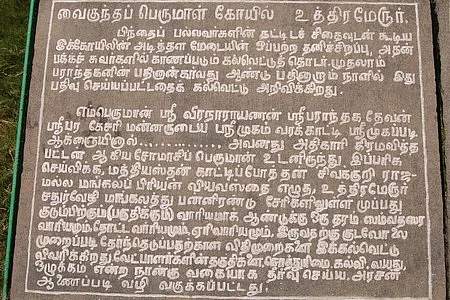 வைகுந்தப் பெருமாள் கோயில் உத்திரமேரூர்.
பிந்தைப் பல்லவர்களின் கட்டிடச் சிதைவுடன் கூடிய
இக்கோயிலின் அடித்தள மேடையின் ஒப்பற்ற தனிச்சிறப்பு, அதன்
பக்கச் சுவர்களில் காணப்படும் கல்வெட்டுத் தொடர். முதலாம்
பராந்தகனின் பதினான்காவது ஆண்டு பதினாறாம் நாளில் இது
பதிவு செய்யப்பட்டதைக் கல்வெட்டு அறிவிக்கிறது.
எம்பெருமான் ஸ்ரீ வீரநாராயணன் ஸ்ரீபராந்தக தேவன்
ஸ்ரீபர கேசரி மன்னருடைய ஸ்ரீமுகம் வரக்காட்டி ஸ்ரீமுகப்படி
ஆக்ஞையினால்................ அவனது அதிகாரி கிரமவித்த
பட்டன், ஆகிய சோமாசிப் பெருமான் உடனிருந்து, இப்பரிசு
செய்விக்க, மத்தியஸ்தன் காட்டிப்போத்தன் சிவக்குறி ராஜ-
மல்ல மங்கலப் பிரியன் இவ்யவஸ்தை எழுத, உத்திரமேரூர்
சதுர்வேதி மங்கலத்து பன்னிரண்டு சேரிகளிலுள்ள முப்பது
குடும்பிற்கும் (பகுதிக்கும்) வாரியமாக ஆண்டுக்கு ஒரு தரம் சம்வத்சர
வாரியமும், தோட்ட வாரியமும், ஏரிவாரியமும், இருவதற்கு குடவோலை
முறைப்படி தேர்ந்தெடுப்பதற்கான விதிமுறைகளை இக்கல்வெட்டு
விவரிக்கிறது. வேட்பாளர்களின் தகுதிகளை, சொத்துரிமை, கல்வி, வயது,
ஒழுக்கம் என்ற நான்கு வகையாக தீர்வு செய்ய, அரசன்
ஆணைப்படி வழி வகுக்கப்பட்டது.